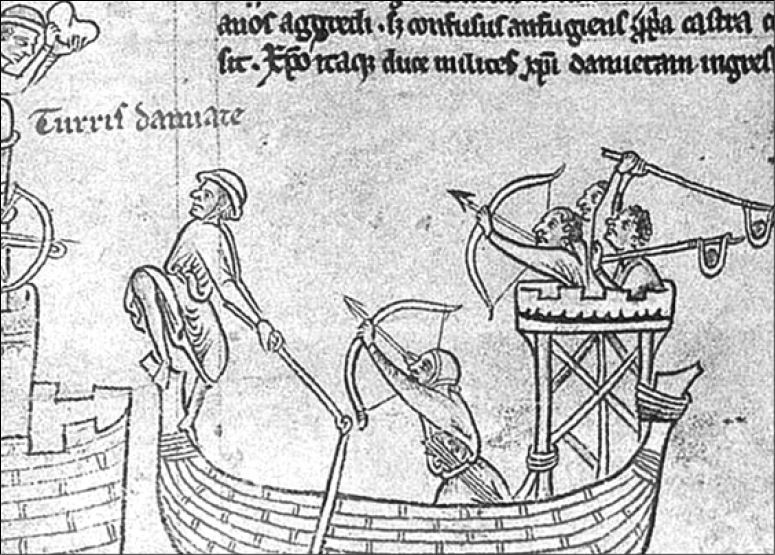 anos aggredi . sꝫ confusus aufugiens ꝓpͥa castra
sit . Xp̄o itaqꝫ duce milites xp̄i damietam ingres
Turris damiate